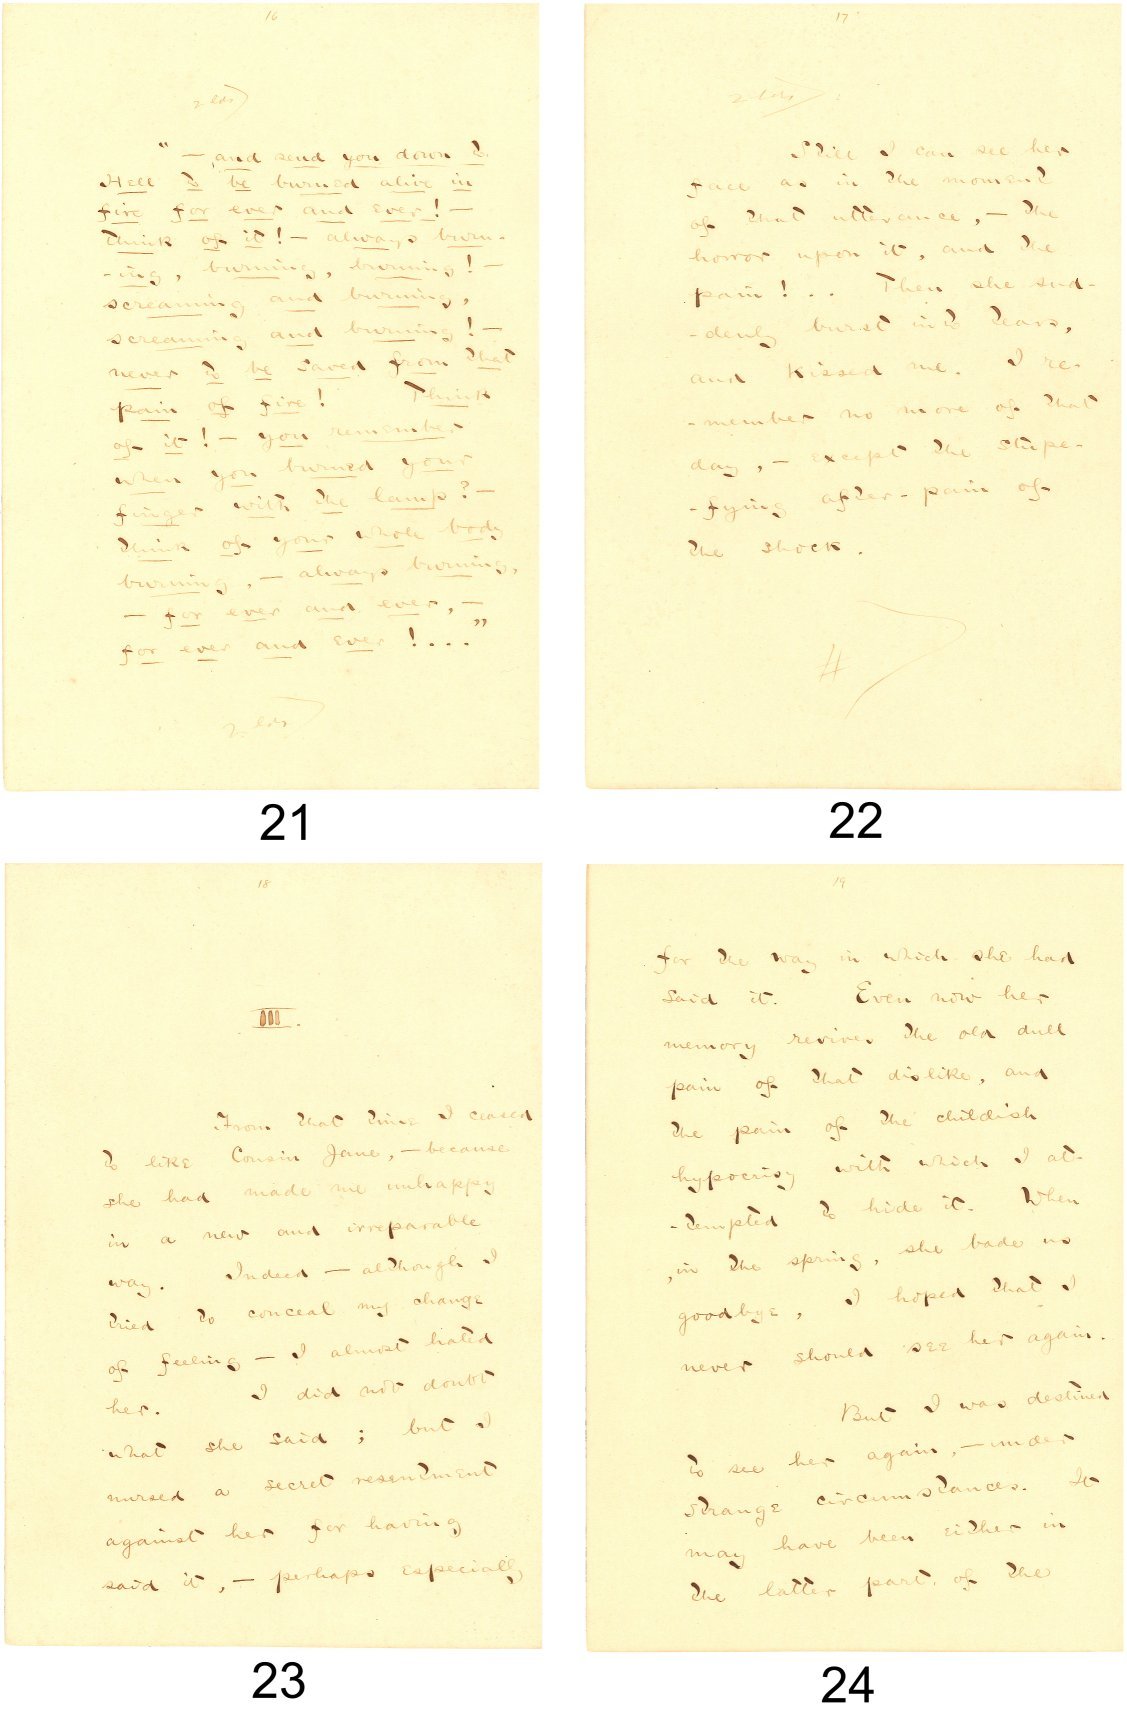 16
2 lds
" —, and send you down to
Hell to be burned alive in
fire for ever and ever! —
think of it! — always burn-
-ing, burning, burning! —
screaming and burning,
screaming and burning! —
never to be saved from that
pain of fire! Think
of it! — you remember
when you burned your
finger with the lamp? —
think of your whole body
burning, — always burning,
— for ever and ever, —
for ever and ever!..."
2 lds
21
17
2 lds
Still I can see her
face as in the moment
of that utterance, — the
horror upon it, and the
pain!.. Then she sud-
-denly burst into tears,
and kissed me. I re-
-member no more of that
day, — except the stupe-
-fying after-pain of
the shock.
#
22
18
III.
From that time I ceased
to like Cousin Jane, — because
she had made me unhappy
in a new and irreparable
way. Indeed — although I
tried to conceal my change
of feeling — I almost hated
her. I did not doubt
what she said; but I
nursed a secret resentment
against her for having
said it, — perhaps especially
23
19
for the way in which she had
said it. Even now her
memory revives the old dull
pain of that dislike, and
the pain of the childish
hypocrisy with which I at-
-tempted to hide it. When
, in the spring, she bade us
goodbye, I hoped that I
never should see her again.
But I was destined
to see her again, — under
strange circumstances. It
may have been either in
the latter part of the
24